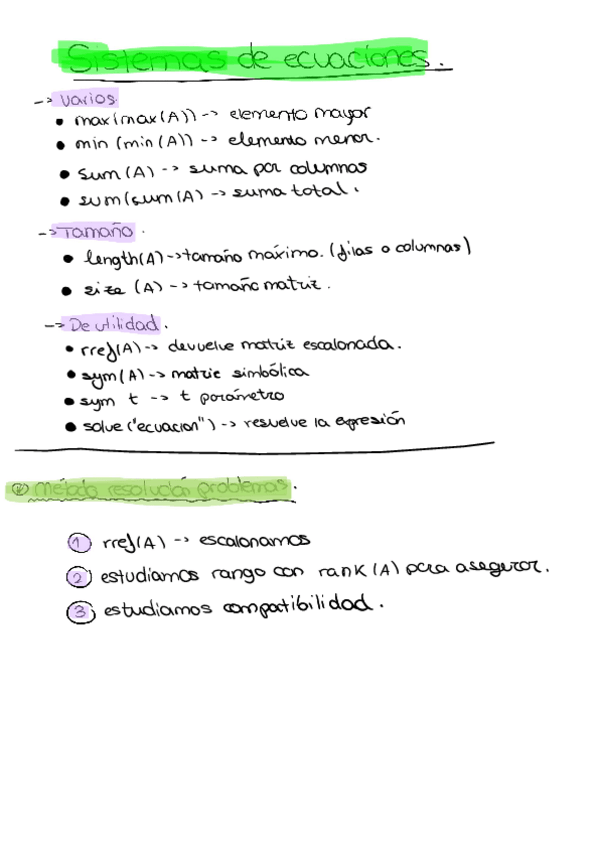 Sistemas de ecuaciones.
-> Varios.
• max(max(A)) -> elemento mayor
• min (min (A)) -> elemento menor.
• sum (A) -> suma por columnas
• sum(sum(A) -> suma total.
-> Tamaño.
• length(A) -> tamaño máximo. (filas o columnas)
• size (A) -> tamaño matriz.
-> De utilidad.
• rref(A) -> devuelve matriz escalonada.
• sym(A) -> matriz simbólica
• sym t -> t parámetro
• solve ("ecuacion") -> resuelve la expresión
Método resolución problemas.
1 rref(A) -> escalonamos
2 estudiamos rango con rank (A) para asegurar.
3 estudiamos compatibilidad.